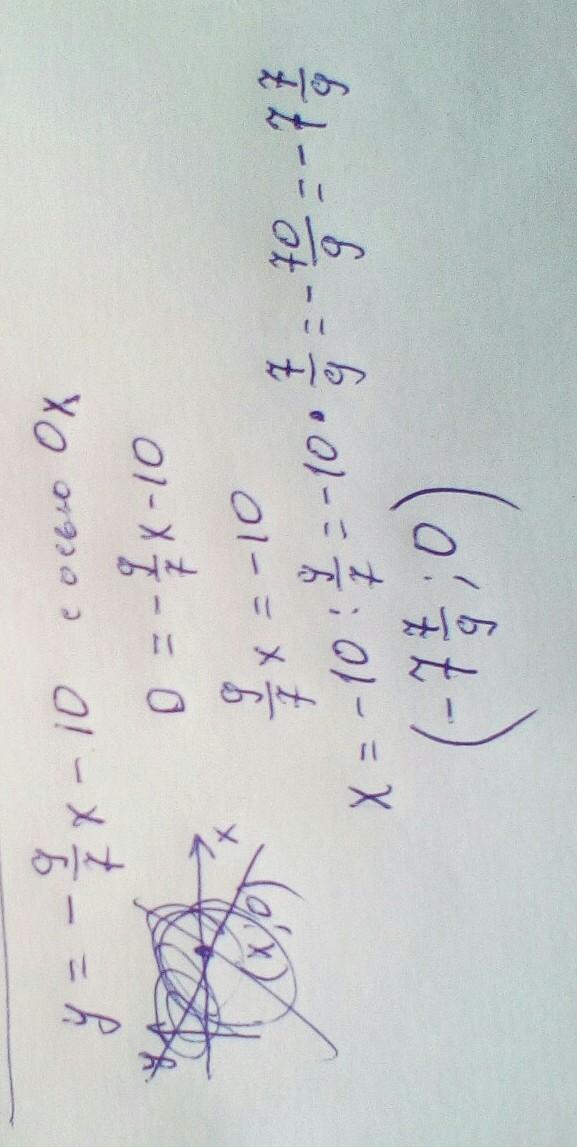 y = -9/7 x - 10 с осью Ox
0 = -9/7 x - 10
9/7 x = -10
x = -10 : 9/7 = -10 · 7/9 = -70/9 = -7 7/9
(-7 7/9 ; 0)
y
x
(x; 0)